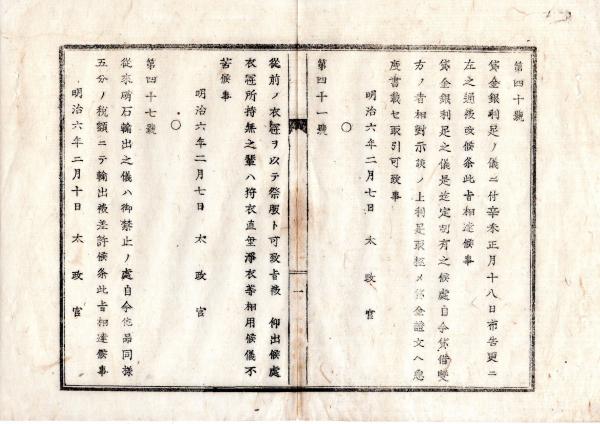 第四十號
貸金銀利足ノ儀ニ付辛未正月十八日布告更ニ
左之通被改候条此旨相達候事
貸金銀利足之儀是迄定制有之候處自今貸借雙
方ノ者相對示談ノ上利足取極メ貸金證文ヘ急
度書載セ取引可致事
明治六年二月七日 太政官
○
第四十一號
從前ノ衣冠ヲ以テ祭服ト可致旨被 仰出候處
衣冠所持無之輩ハ狩衣直垂淨衣等相用候儀不
苦候事
明治六年二月七日 太政官
○
第四十七號
從來硝石輸出之儀ハ御禁止ノ處自今他品同様
五分ノ税額ニテ輸出被差許候条此旨相達候事
明治六年二月十日 太政官
一